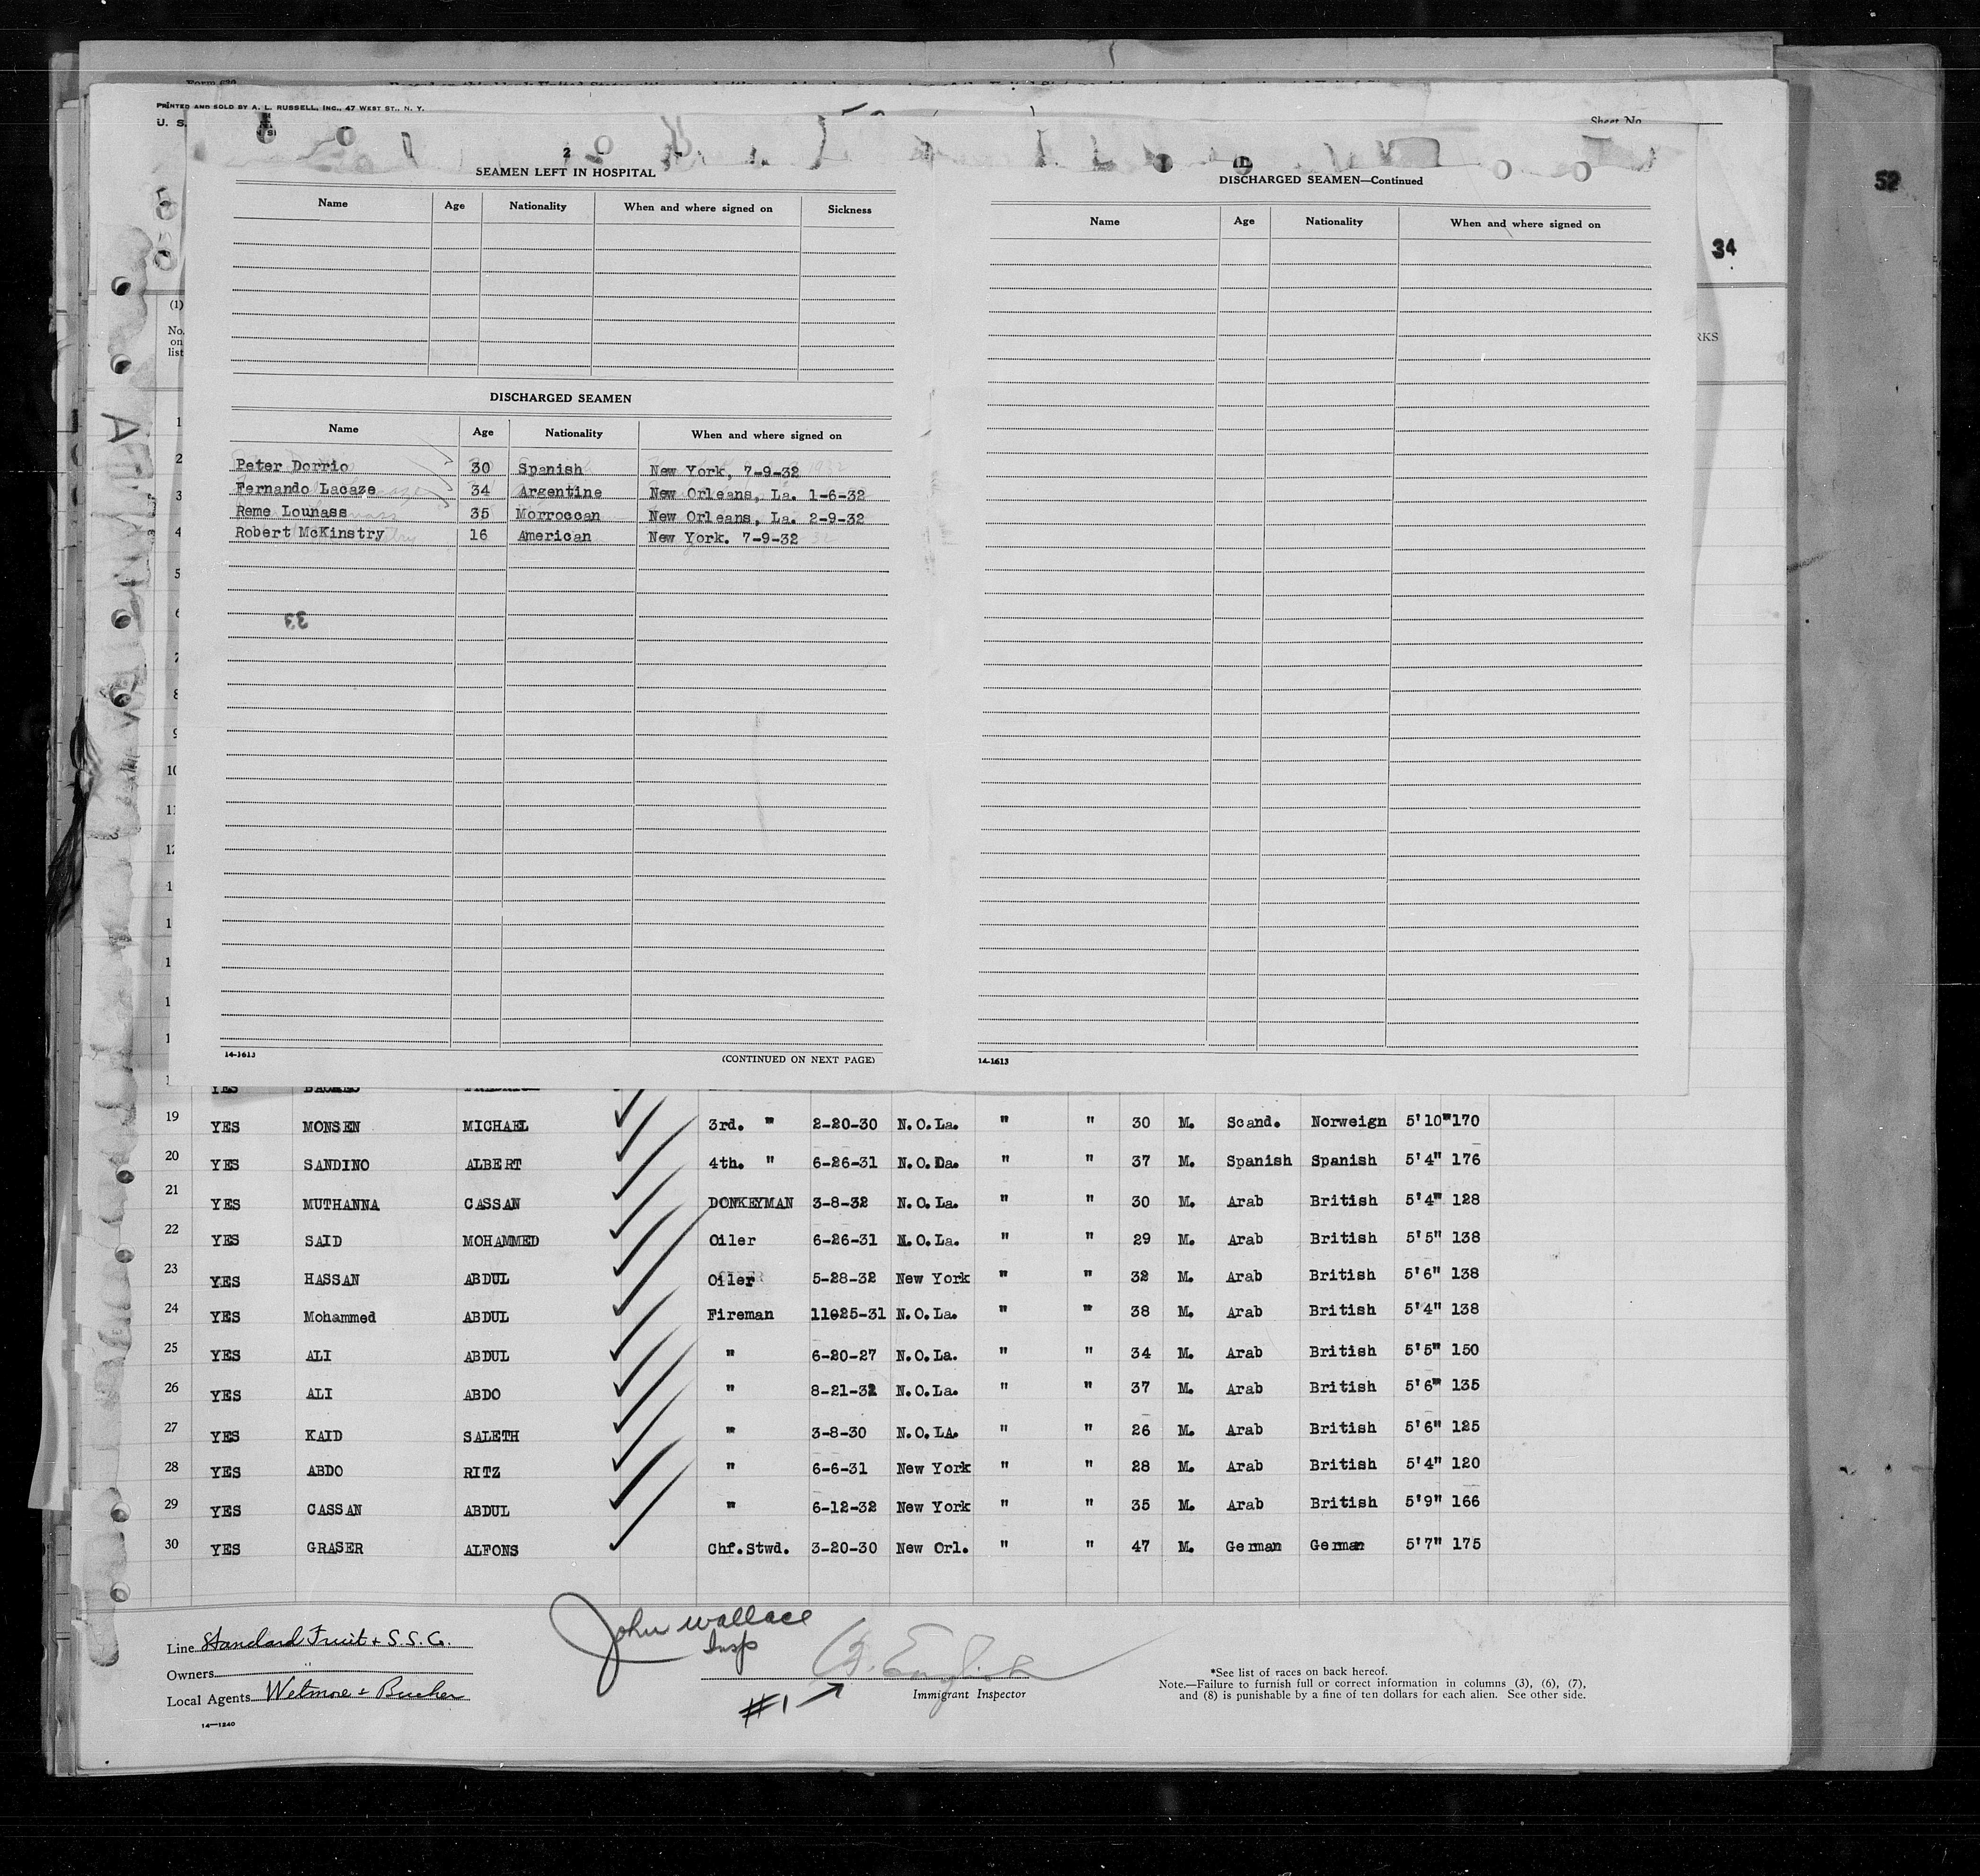 PRINTED AND SOLD BY A. L. RUSSELL, INC., 47 WEST ST., N. Y.
U. S.
Sheet No.
52
34
2
SEAMEN LEFT IN HOSPITAL
Name Age Nationality When and where signed on Sickness
DISCHARGED SEAMEN
Name Age Nationality When and where signed on
Peter Dorrio 30 Spanish New York, 7-9-32
Fernando Lacaze 34 Argentine New Orleans, La. 1-6-32
Reme Lounass 35 Morroccan New Orleans, La. 2-9-32
Robert McKinstry 16 American New York. 7-9-32
33
14-1613 (CONTINUED ON NEXT PAGE)
DISCHARGED SEAMEN—Continued
Name Age Nationality When and where signed on
14-1613
(1)
No.
on
list
RKS
1
2
3
4
5
6
7
8
9
10
11
12
YES
19 YES MONSEN MICHAEL 3rd. " 2-20-30 N.O.La. " " 30 M. Scand. Norweign 5'10" 170
20 YES SANDINO ALBERT 4th. " 6-26-31 N.O.La. " " 37 M. Spanish Spanish 5'4" 176
21 YES MUTHANNA CASSAN DONKEYMAN 3-8-32 N.O.La. " " 30 M. Arab British 5'4" 128
22 YES SAID MOHAMMED Oiler 6-26-31 N.O.La. " " 29 M. Arab British 5'5" 138
23 YES HASSAN ABDUL Oiler 5-28-32 New York " " 32 M. Arab British 5'6" 138
24 YES Mohammed ABDUL Fireman 11025-31 N.O.La. " " 38 M. Arab British 5'4" 138
25 YES ALI ABDUL " 6-20-27 N.O.La. " " 34 M. Arab British 5'5" 150
26 YES ALI ABDO " 8-21-32 N.O.La. " " 37 M. Arab British 5'6" 135
27 YES KAID SALETH " 3-8-30 N.O.LA. " " 26 M. Arab British 5'6" 125
28 YES ABDO RITZ " 6-6-31 New York " " 28 M. Arab British 5'4" 120
29 YES CASSAN ABDUL " 6-12-32 New York " " 35 M. Arab British 5'9" 166
30 YES GRASER ALFONS Chf.Stwd. 3-20-30 New Orl. " " 47 M. German German 5'7" 175
John Wallace
Insp
Line Standard Fruit & S.S. Co.
Owners "
Local Agents Wetmore &
#1
Immigrant Inspector
*See list of races on back hereof.
Note.—Failure to furnish full or correct information in columns (3), (6), (7),
and (8) is punishable by a fine of ten dollars for each alien. See other side.
14—1240